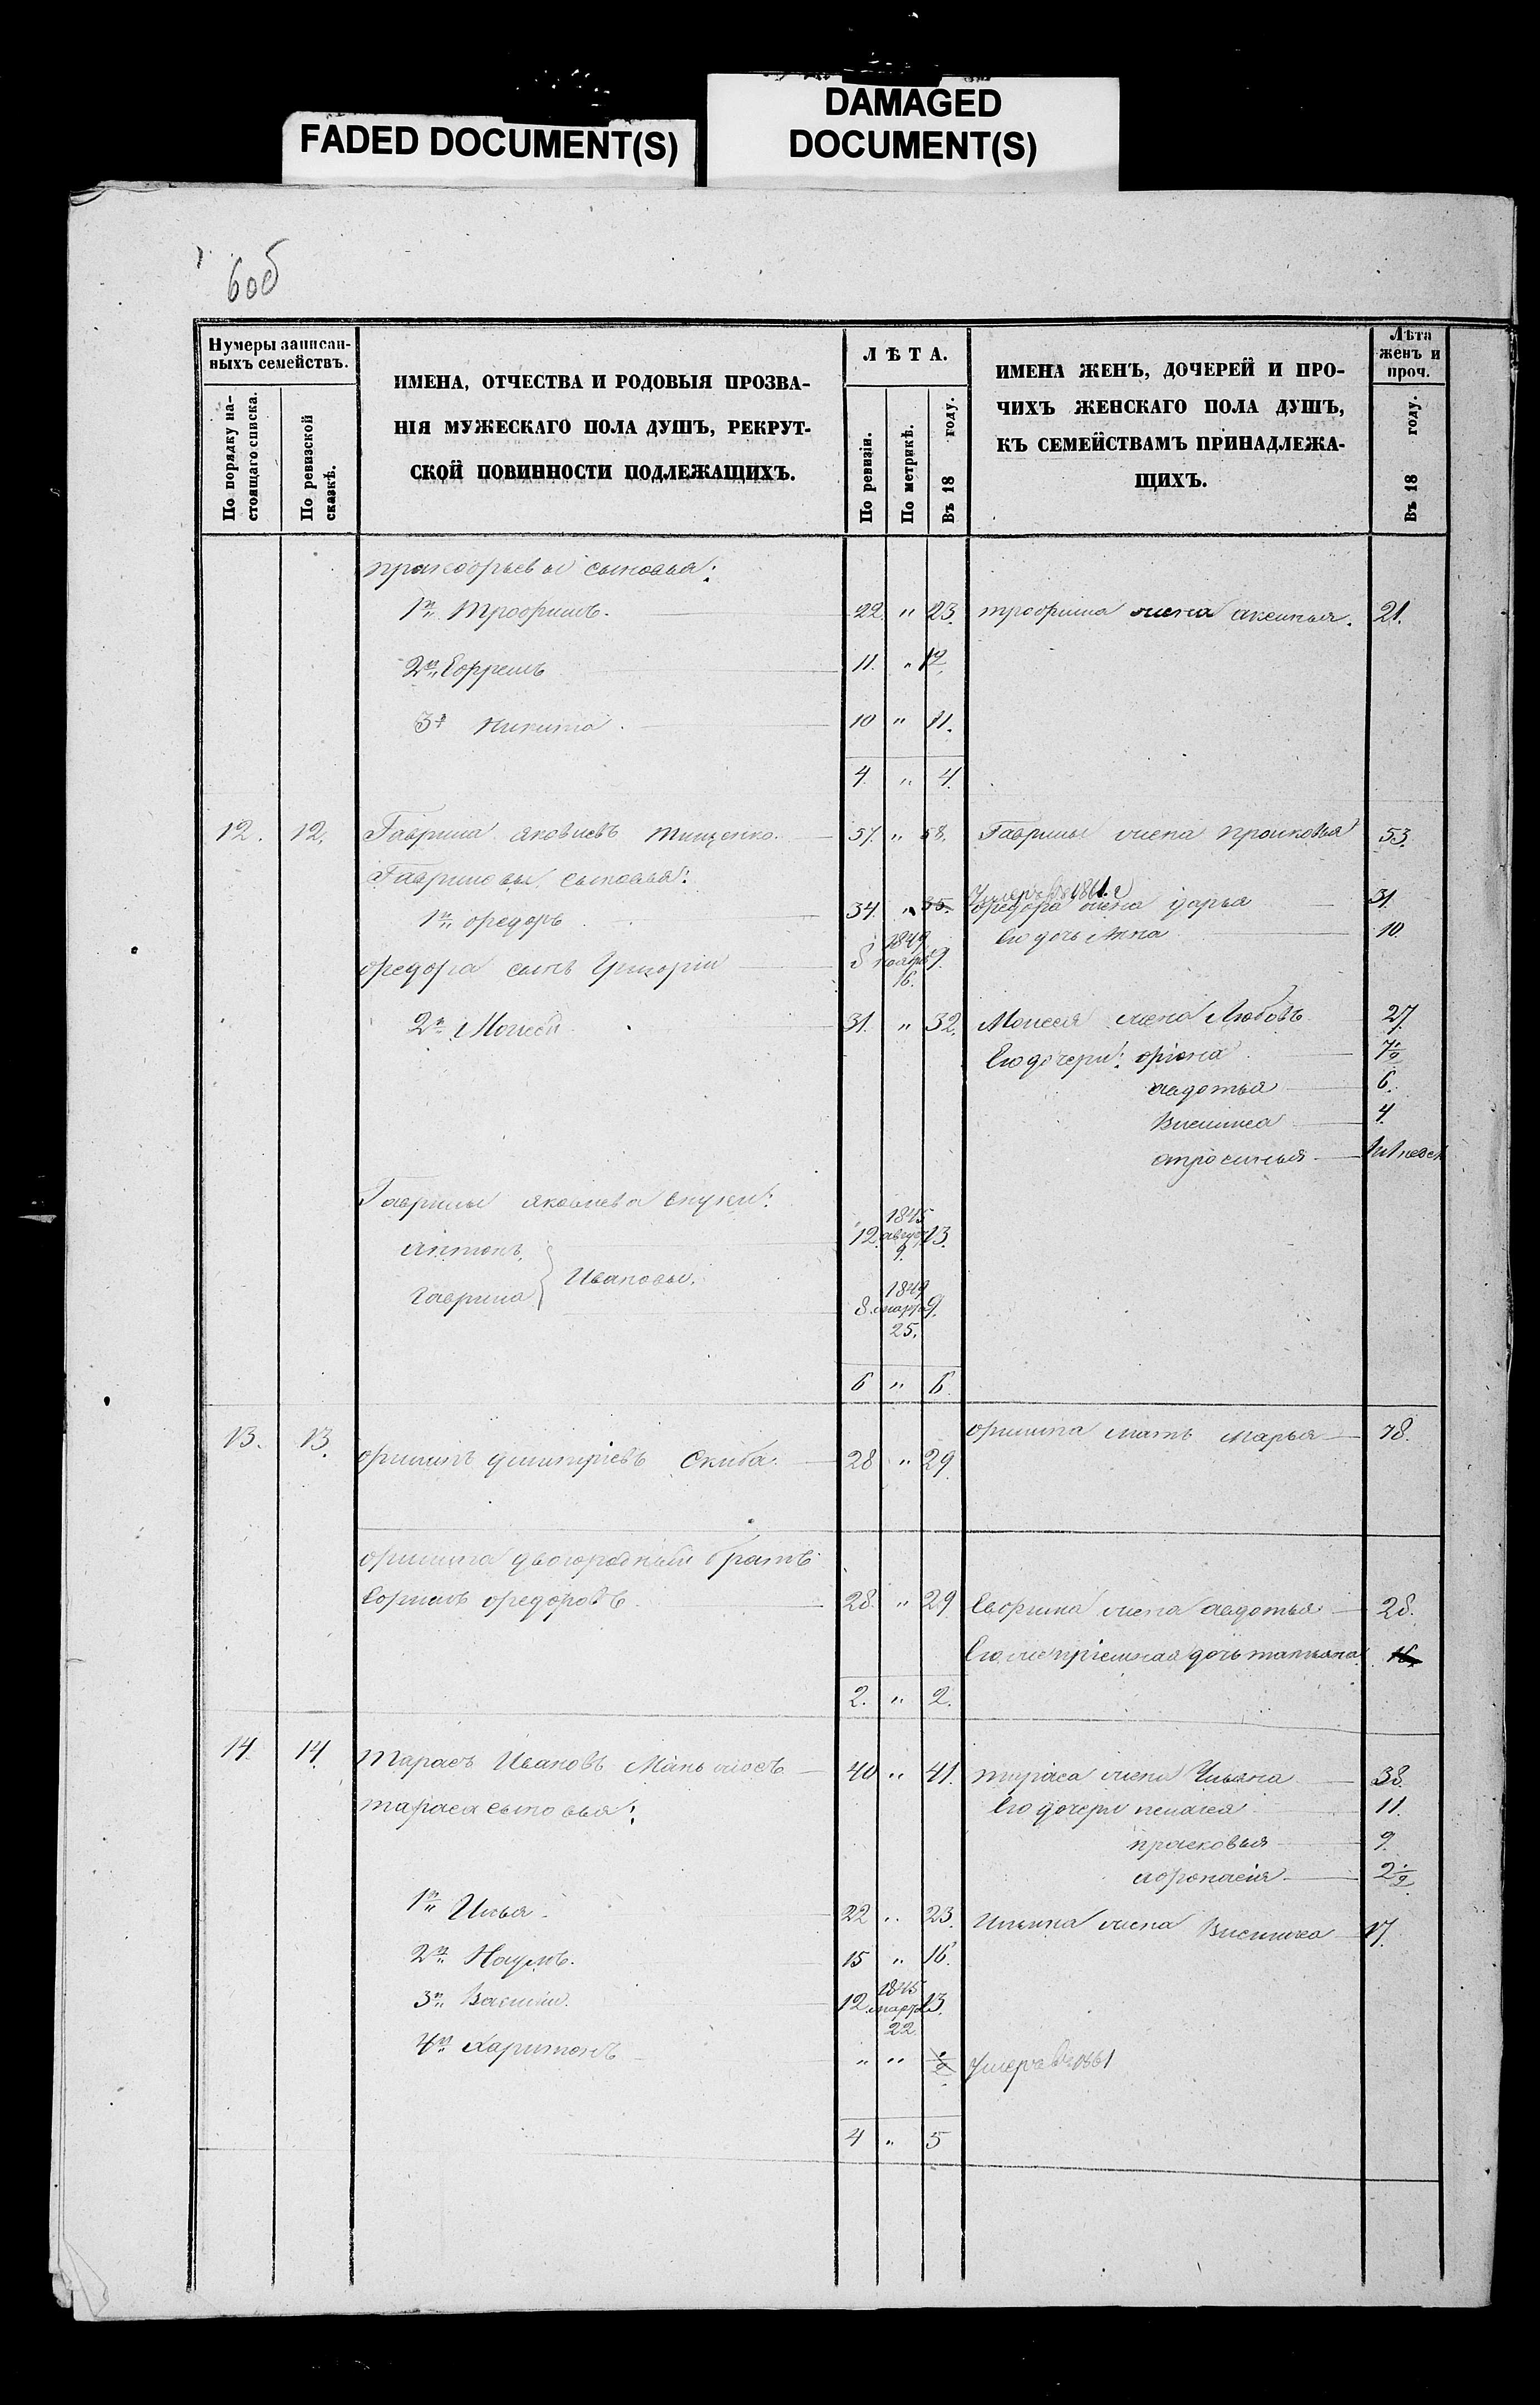 FADED DOCUMENT(S)
DAMAGED
DOCUMENT(S)
6об
Нумеры записан-
ныхъ семействъ.
По порядку на-
стоящаго списка.
По ревизской
сказкѣ.
ИМЕНА, ОТЧЕСТВА И РОДОВЫЯ ПРОЗВА-
НІЯ МУЖЕСКАГО ПОЛА ДУШЪ, РЕКРУТ-
СКОЙ ПОВИННОСТИ ПОДЛЕЖАЩИХЪ.
ЛѢТА.
По ревизіи.
По метрикѣ.
Въ 18 году.
ИМЕНА ЖЕНЪ, ДОЧЕРЕЙ И ПРО-
ЧИХЪ ЖЕНСКАГО ПОЛА ДУШЪ,
КЪ СЕМЕЙСТВАМЪ ПРИНАДЛЕЖА-
ЩИХЪ.
Лѣта
женъ и
проч.
Въ 18 году.
сыновья:
1й Трофимъ. 22 " 23. трофима жена аксинья. 21.
2й Ефремъ 11. " 12
3й Никита. 10 " 11.
4. " 4.
12. 12. Гаврила яковлевъ тищенко. 57. " 58. Гаврилы жена прасковья 53.
Гавриловы сыновья:
Умеръ въ 1861. г
1й федоръ 34. " 35. федора жена дарья 31.
его дочь Анна 10.
федора сынъ Григорій 8 1849 ноября 16. 9.
2й Моисей 31. " 32. Моисея жена Любовь 27.
Его дочери: 7½
авдотья 6.
Василиса 4.
4 недел
Гаврилы яковлева внуки:
антонъ 12. 1845 август 9. 13.
гаврила } Ивановы. 8. 1849 марта 25. 9.
6 " 6.
13. 13. филипъ дмитріевъ Скиба. 28 " 29. филипа мать марья 78.
филипа двоюродный братъ
федоровъ. 28. " 29 жена авдотья 28.
пріемная дочь татьяна 16.
2. " 2.
14. 14. Тарасъ Ивановъ 40 " 41. тараса жена Ульяна 38.
тараса сыновья:
Его дочери пелагея 11.
прасковья 9.
афонасія 2½
1й Илья. 22 " 23. Ильина жена Василиса 17.
2й Наумъ. 15 " 16.
3й Василій. 12. 1845 марта 22. 13.
4й Харитонъ " " ½ Умеръ въ 1861
4 " 5